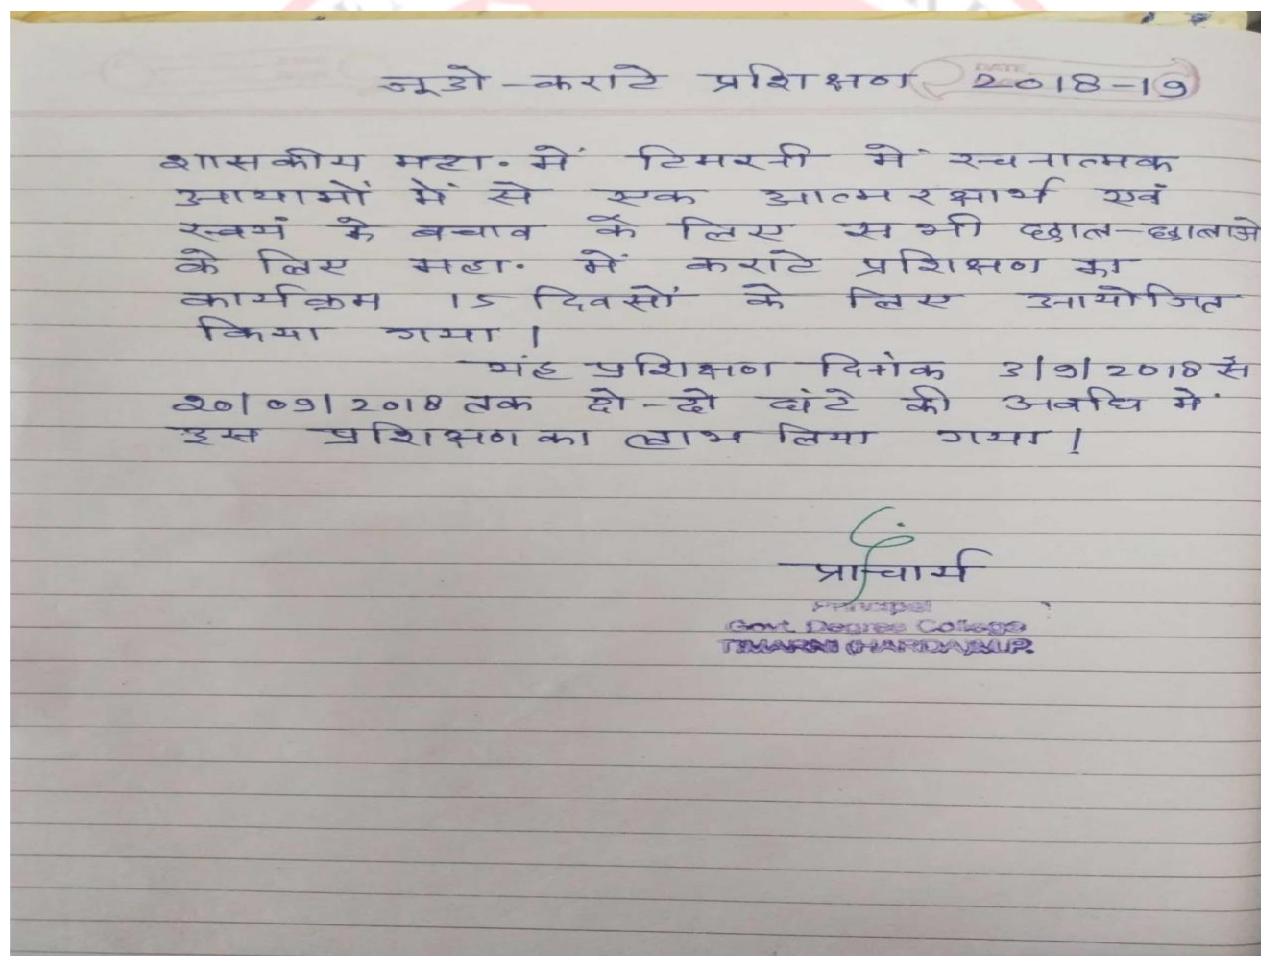 जूडो-कराटे प्रशिक्षण 2018-19
शासकीय महा. में टिमरनी में रचनात्मक
आयामों में से एक आत्मरक्षार्थ एवं
स्वयं के बचाव के लिए सभी छात्र-छात्राओ
के लिए महा. में कराटे प्रशिक्षण का
कार्यक्रम 15 दिवसों के लिए आयोजित
किया गया।
यंह प्रशिक्षण दिनांक 3/9/2018 से
20/09/2018 तक दो-दो घंटे की अवधि में
इस प्रशिक्षण का लाभ लिया गया।
प्राचार्य
Principal
Govt. Degree College
TIMARNI (HARDA) M.P.